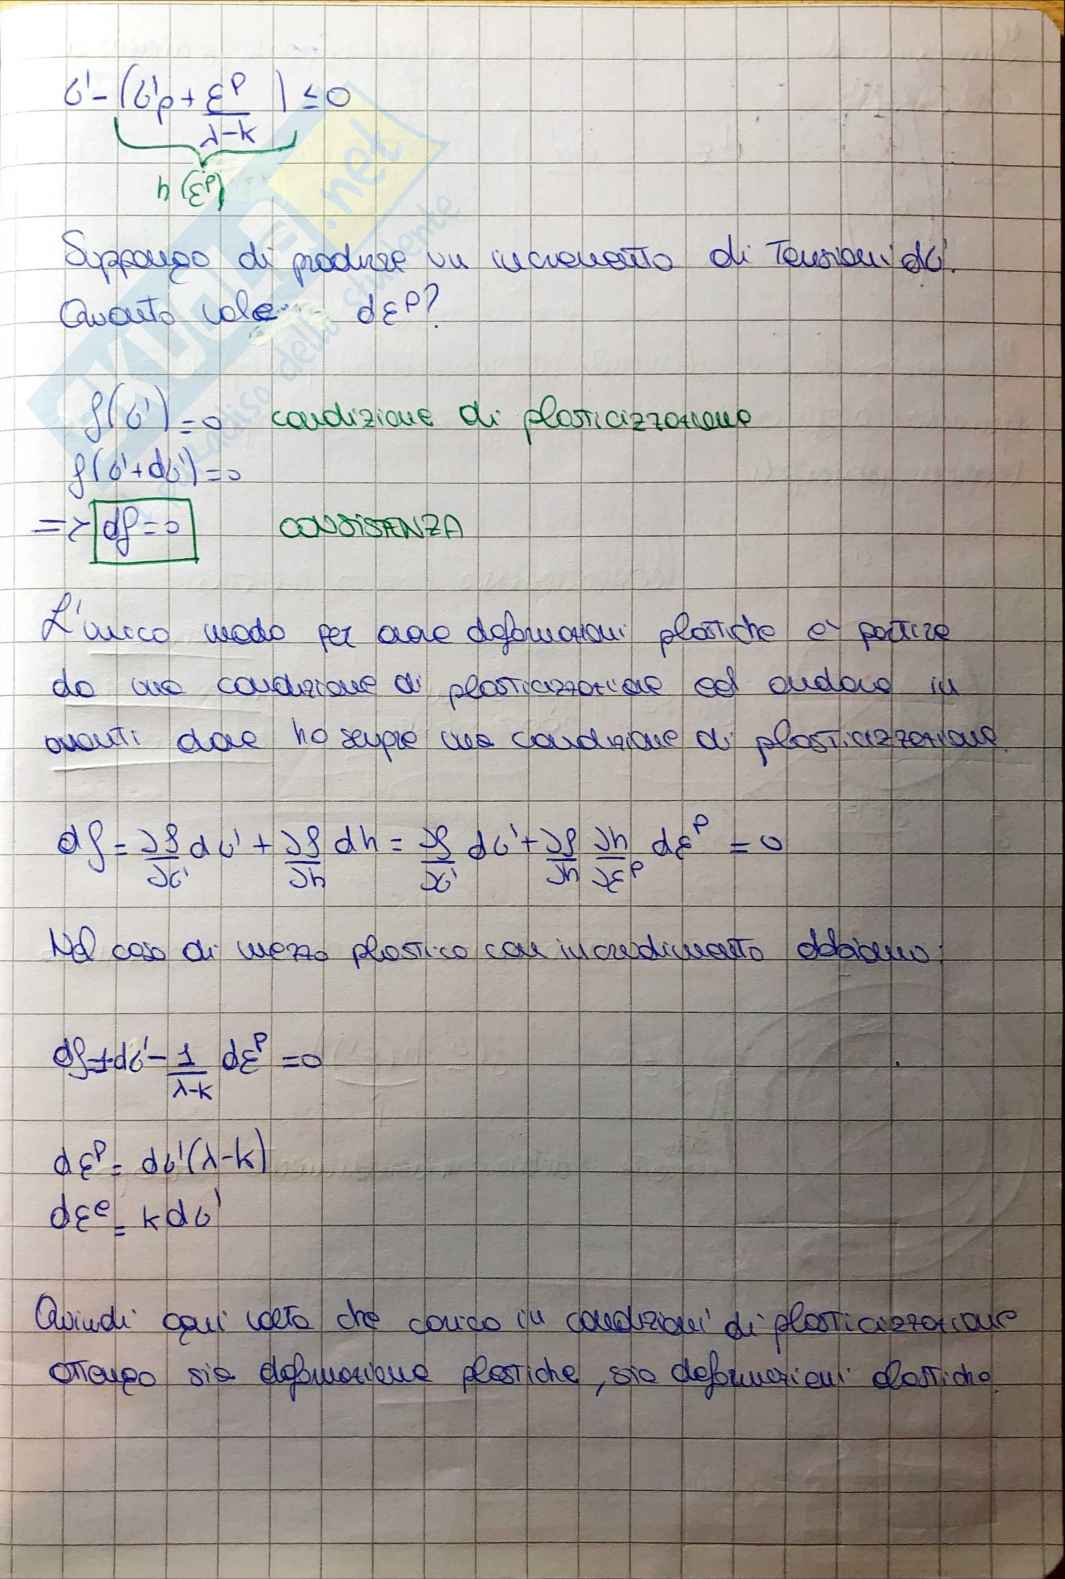 σ' - (σ'p + εᵖ/(λ-k)) ≤ 0
h(εᵖ)
Suppongo di produrre un incremento di Tensioni dσ'.
Quanto vale dεᵖ?
f(σ') = 0 condizione di plasticizzazione
f(σ'+dσ') = 0
=> df = 0 CONSISTENZA
L'unico modo per avere deformazioni plastiche è partire
da una condizione di plasticizzazione ed andare in
avanti dove ho sempre una condizione di plasticizzazione.
df = ∂f/∂σ' dσ' + ∂f/∂h dh = ∂f/∂σ' dσ' + ∂f/∂h ∂h/∂εᵖ dεᵖ = 0
Nel caso di mezzo plastico con incrudimento abbiamo:
df = +dσ' - 1/(λ-k) dεᵖ = 0
dεᵖ = dσ'(λ-k)
dεᵉ = k dσ'
Quindi ogni volta che carico in condizioni di plasticizzazione
ottengo sia deformazione plastiche, sia deformazioni elastiche.
SKUOLA.net
paradiso dello studente